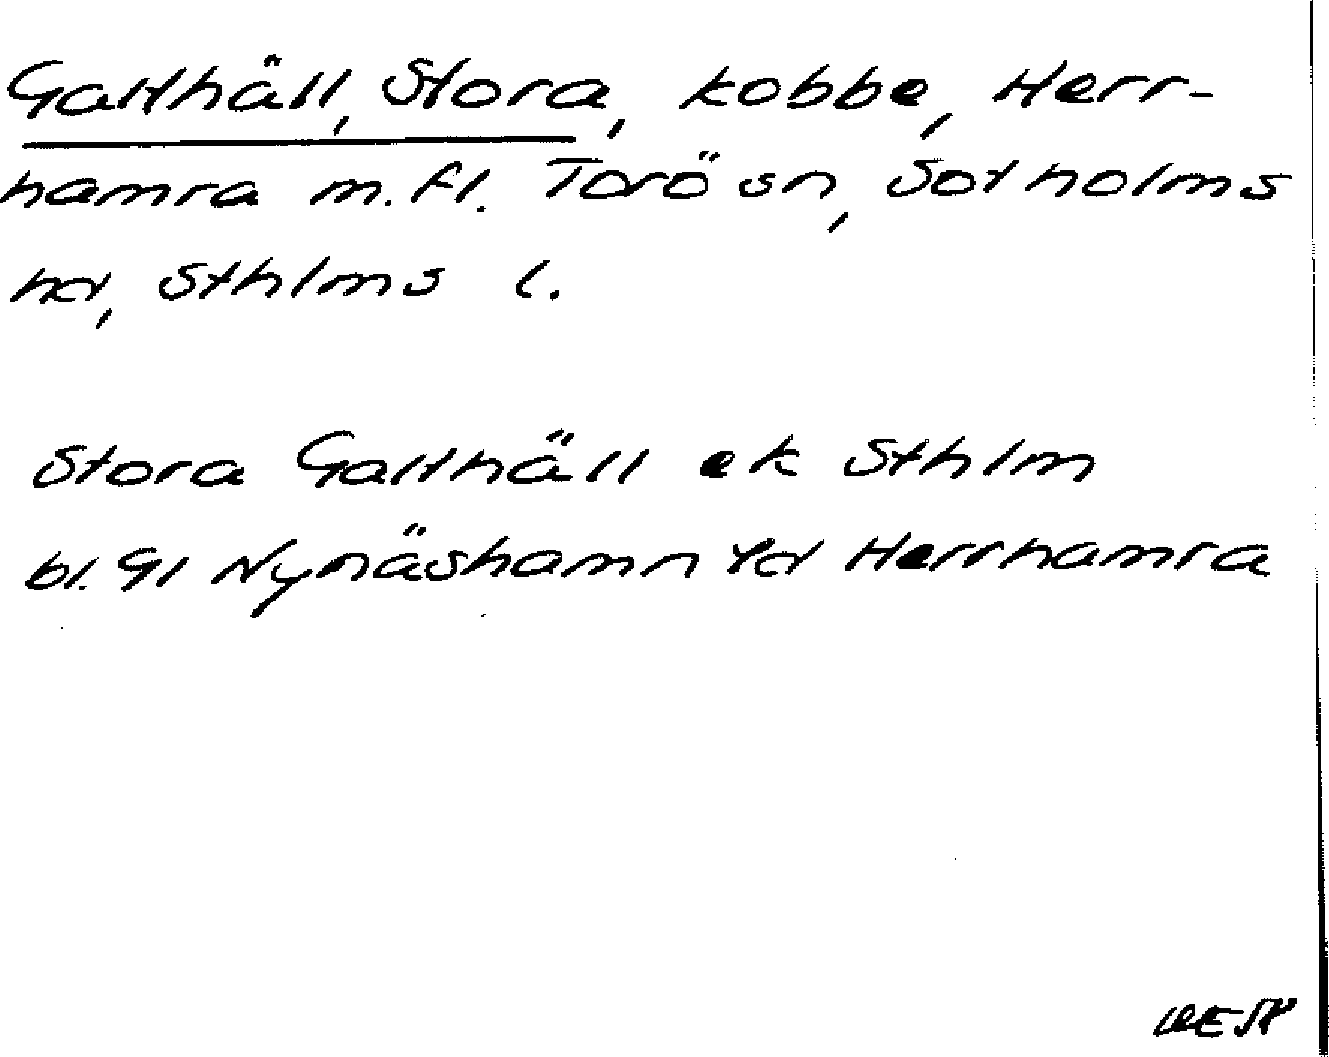 Galthäll, Stora, kobbe, Herr-
hamra m.fl. Torö sn, Sotholms
hd, Sthlms l.
Stora Galthäll ek Sthlm
bl. 91 Nynäshamn Yd Herrhamra